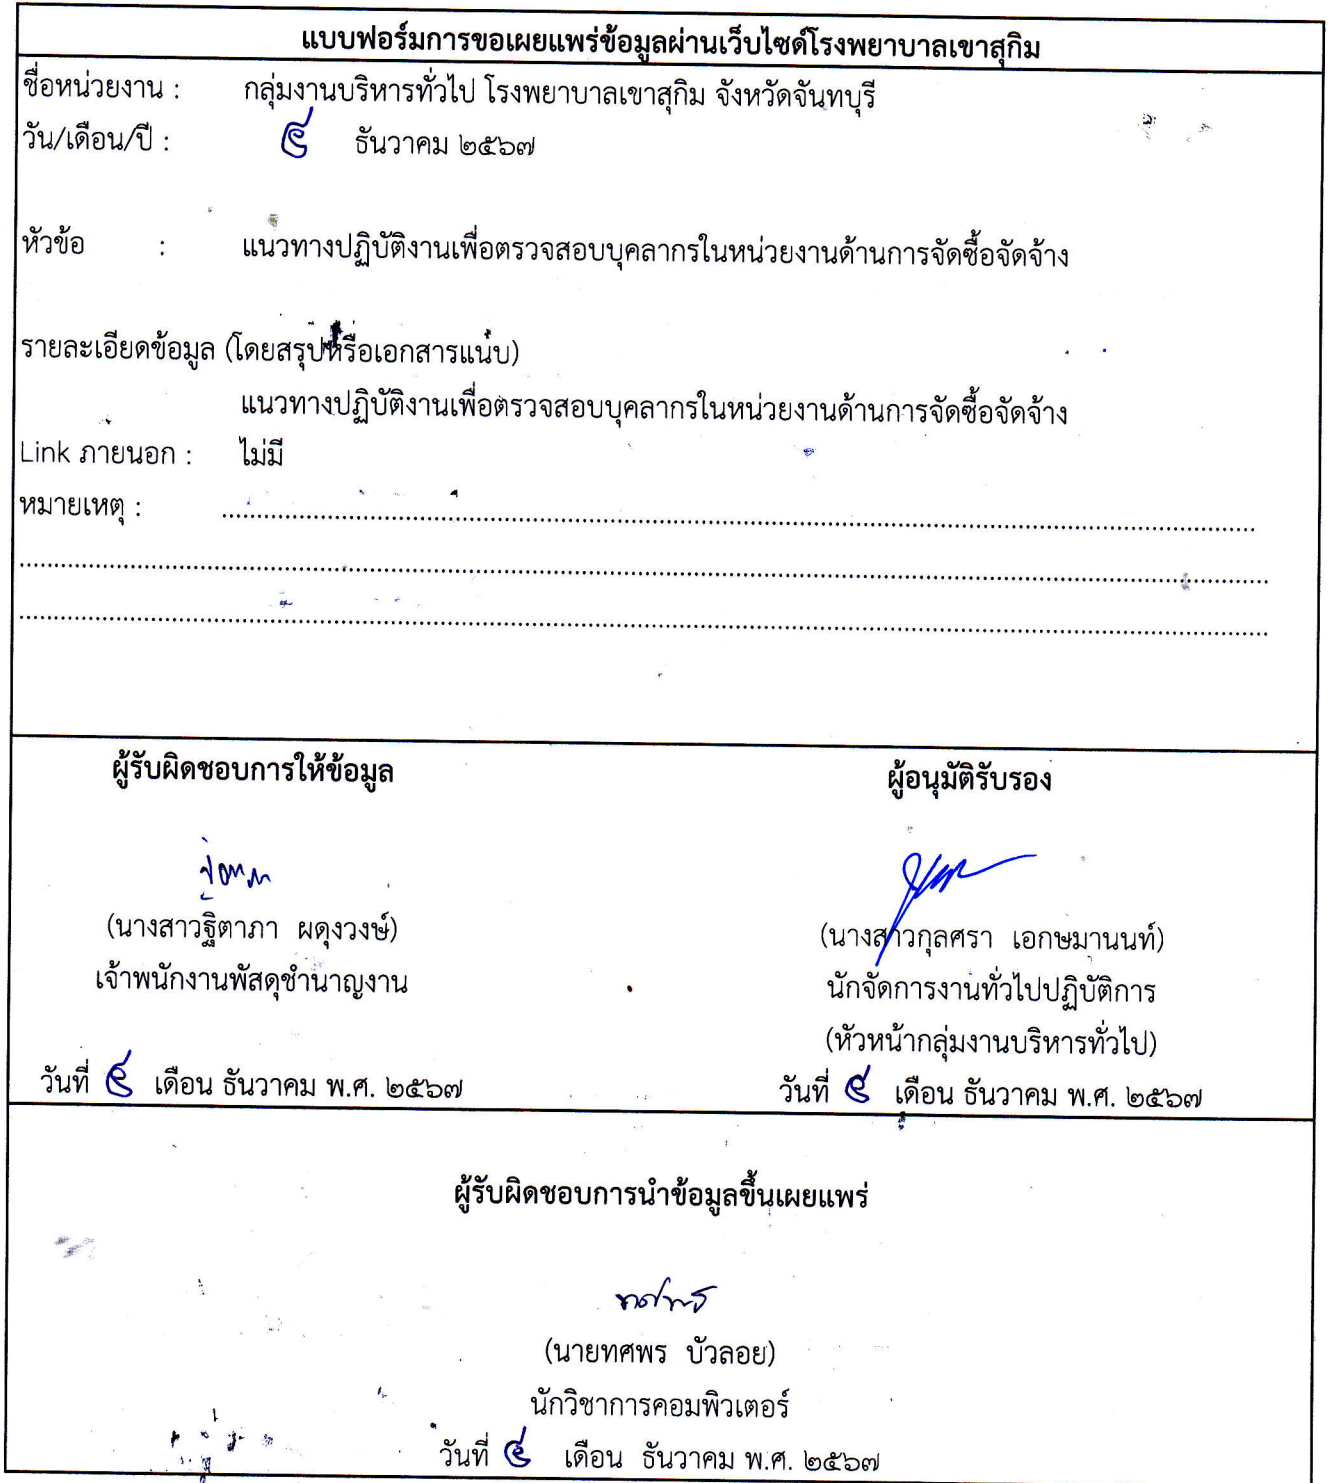 แบบฟอร์มการขอเผยแพร่ข้อมูลผ่านเว็บไซต์โรงพยาบาลเขาสุกิม
ชื่อหน่วยงาน : กลุ่มงานบริหารทั่วไป โรงพยาบาลเขาสุกิม จังหวัดจันทบุรี
วัน/เดือน/ปี : ๔ ธันวาคม ๒๕๖๗
หัวข้อ : แนวทางปฏิบัติงานเพื่อตรวจสอบบุคลากรในหน่วยงานด้านการจัดซื้อจัดจ้าง
รายละเอียดข้อมูล (โดยสรุปหรือเอกสารแนบ)
แนวทางปฏิบัติงานเพื่อตรวจสอบบุคลากรในหน่วยงานด้านการจัดซื้อจัดจ้าง
Link ภายนอก : ไม่มี
หมายเหตุ :
ผู้รับผิดชอบการให้ข้อมูล
ฐิตาภา
(นางสาวฐิตาภา ผดุงวงษ์)
เจ้าพนักงานพัสดุชำนาญงาน
วันที่ ๔ เดือน ธันวาคม พ.ศ. ๒๕๖๗
ผู้อนุมัติรับรอง
(นางสาวกุลศรา เอกษมานนท์)
นักจัดการงานทั่วไปปฏิบัติการ
(หัวหน้ากลุ่มงานบริหารทั่วไป)
วันที่ ๔ เดือน ธันวาคม พ.ศ. ๒๕๖๗
ผู้รับผิดชอบการนำข้อมูลขึ้นเผยแพร่
ทศพร
(นายทศพร บัวลอย)
นักวิชาการคอมพิวเตอร์
วันที่ ๔ เดือน ธันวาคม พ.ศ. ๒๕๖๗